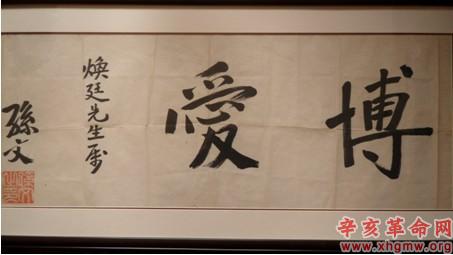 博愛
煥廷先生屬
孫文
辛亥革命网
www.xhgmw.org